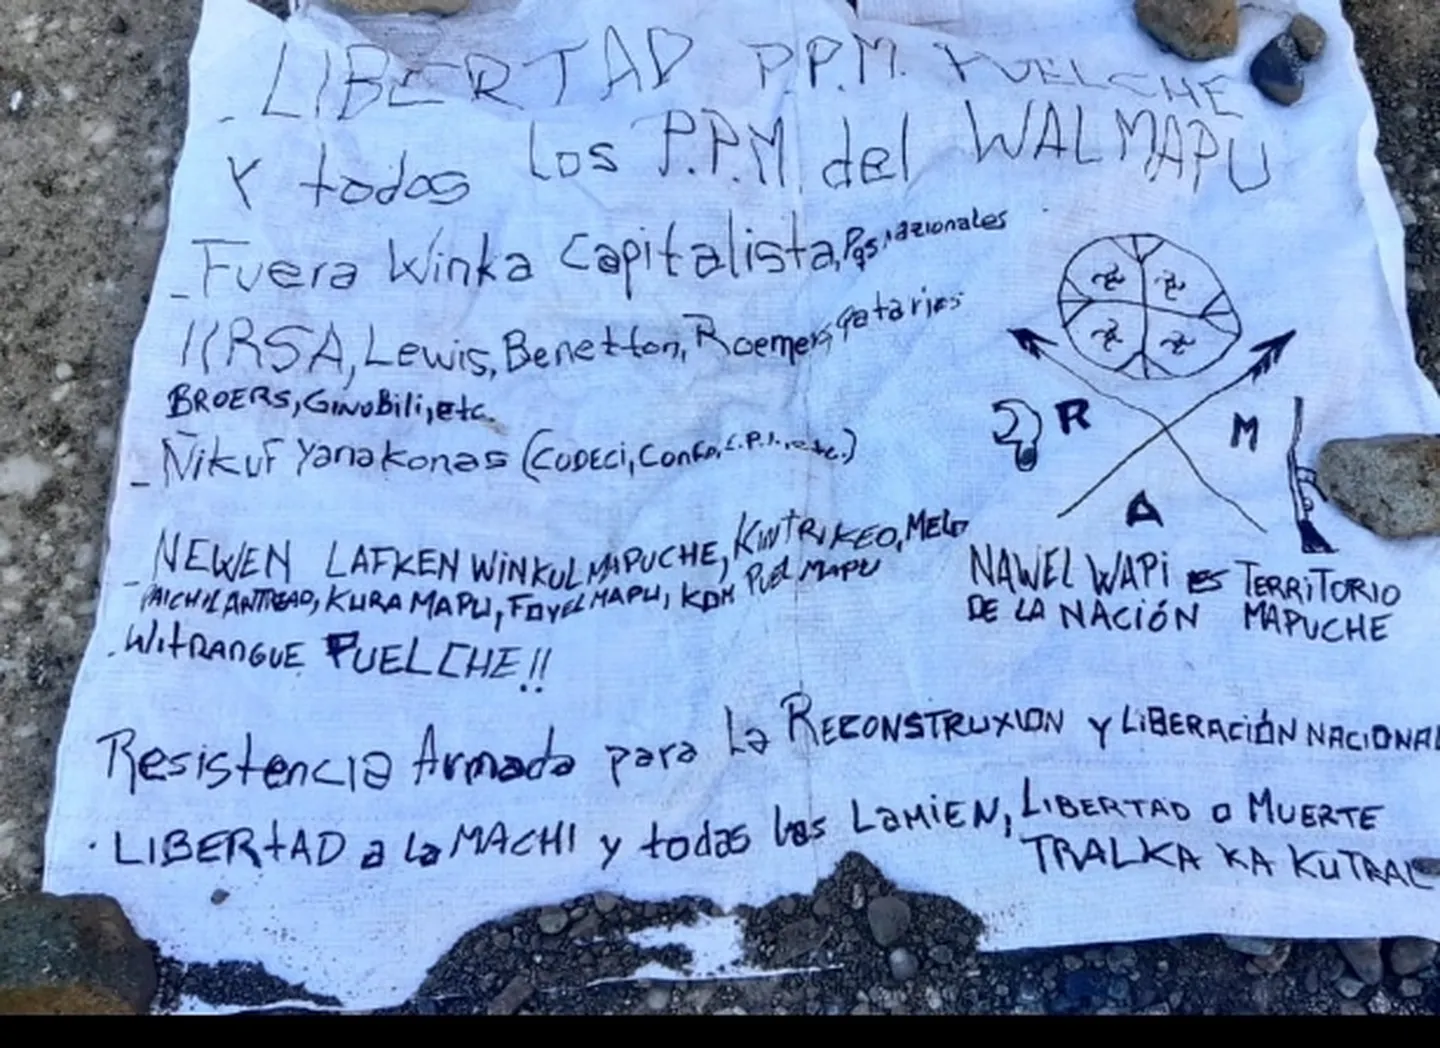 - LIBERTAD P.P.M. PUELCHE
Y todos los P.P.M. del WALMAPU
- Fuera Winka Capitalista,
IIRSA, Lewis, Benetton, Roemers, qataries
BROERS, GINOBili, etc.
- Ñikuf Yanakonas (CODECI, Confo, C.P.I., etc.)
- NEWEN LAFKEN WINKUL MAPUCHE, KWTRIKEO, MELO
PAICHIL ANTREAO, KURA MAPU, FOYEL MAPU, KDM PUEL MAPU
. WitRANGUE PUELCHE!!
R M
A
NAWEL WAPI es TERRITORIO
DE LA NACIÓN MAPUCHE
Resistencia Armada para La RECONSTRUXION Y LIBERACIÓN NACIONAL
. LIBERtAD a la MACHI y todas las LAMIEN, LIBERTAD O MUERTE
TRALKA KA KUTRAL